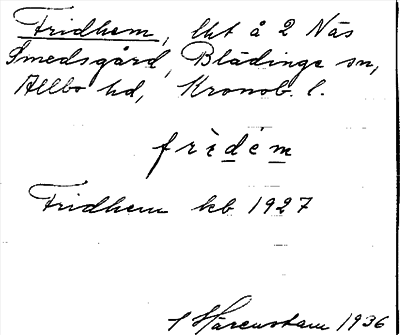 Fridhem, lht å 2 Näs
Smedsgård, Blädinge sn,
Allbo hd, Kronob. l.
frìdém
Fridhem kb 1927
S Härenstam 1936